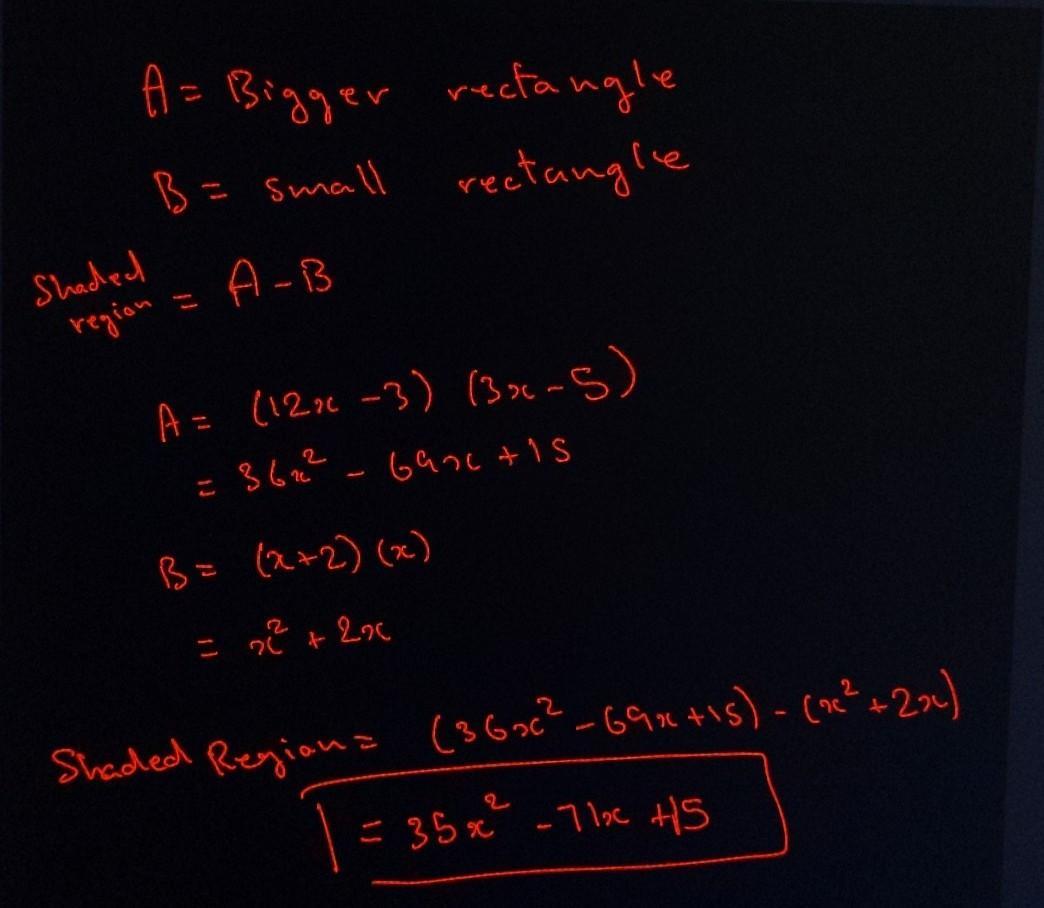 A = Bigger rectangle
B = small rectangle
Shaded region = A - B
A = (12x - 3) (3x - 5)
= 36x² - 69x + 15
B = (x+2) (x)
= x² + 2x
Shaded Region = (36x² - 69x + 15) - (x² + 2x)
= 35x² - 71x + 15